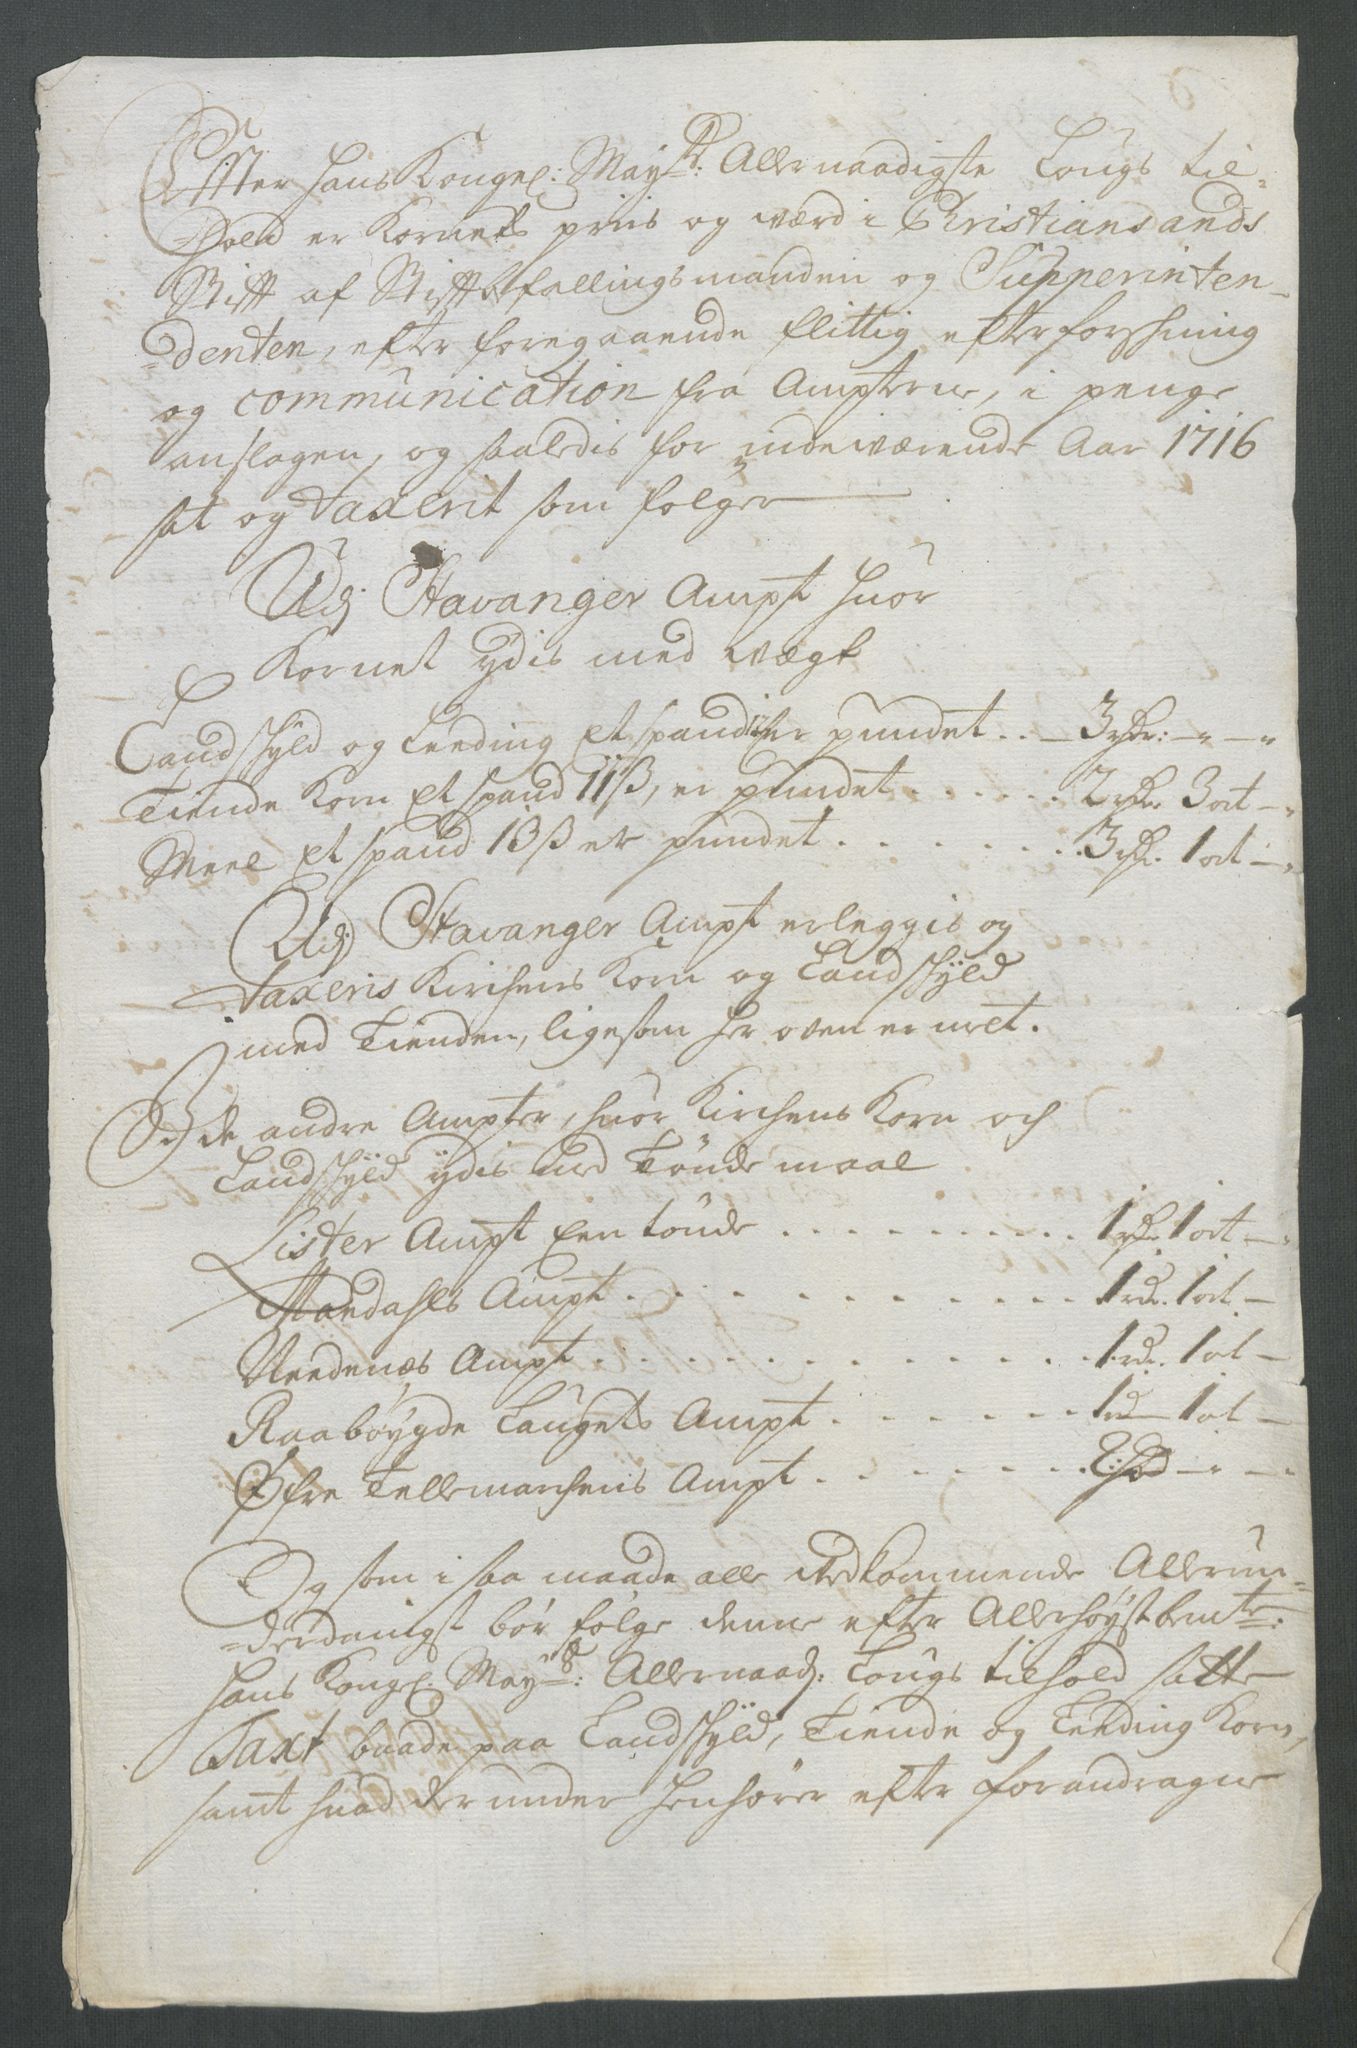 Effter Hans Kongel: May:ts: Allernaadigste Lougs til-
=Hold er Kornets priis og værd i Christiansands
Stift af Stiftsbefallingsmanden og Supperinten-
=denten, efter foregaaende flittig efterforskning
og communication fra Ampterne, i penge
anslagen, og saaledis for indeværende Aar 1716
sat og taxerit som følger
Udj Stavanger Ampt huor
Kornet ydis med vægt
Landskyld og Leeding et spand 12ß er pundet . . _ 3 rdr: - " - "
Tiende Korn et spand 11ß, er pundet . . . . . . 2 rdr. 3 ort - "
Meel et spand 13ß er pundet . . . . . . . 3 rdr. 1 ort - "
Udj Stavanger Ampt erleggis og
taxeris Kirchens Korn og Landskyld
med Tienden, ligesom her oven er melt.
I de andre Ampter, huor Kirchens Korn och
Landskyld ÿdis ved Tønde maal
Lister Ampt Een tønde . . . . . . . . . . 1 rdr. 1 ort - "
Mandahls Ampt . . . . . . . . . . . . 1 rd. 1 ort -
Needenæs Ampt . . . . . . . . . . . . 1 rd. 1 ort -
Raabøygde Laugets Ampt . . . . . . . 1 rd 1 ort -
Øfre Tellemarchens Ampt . . . . . . . 2 rd - " - "
Og som i saa maade alle vedkommende Allerun-
=derdanigst bør følge denne efter Allerhøystbemte:
Hans Kongl. May:ts: Allernaad: Lougs tilhold satte
Taxt baade paa Landskÿld, Tiende og Leeding Korn,
samt huad derunder henhører efter forandragne